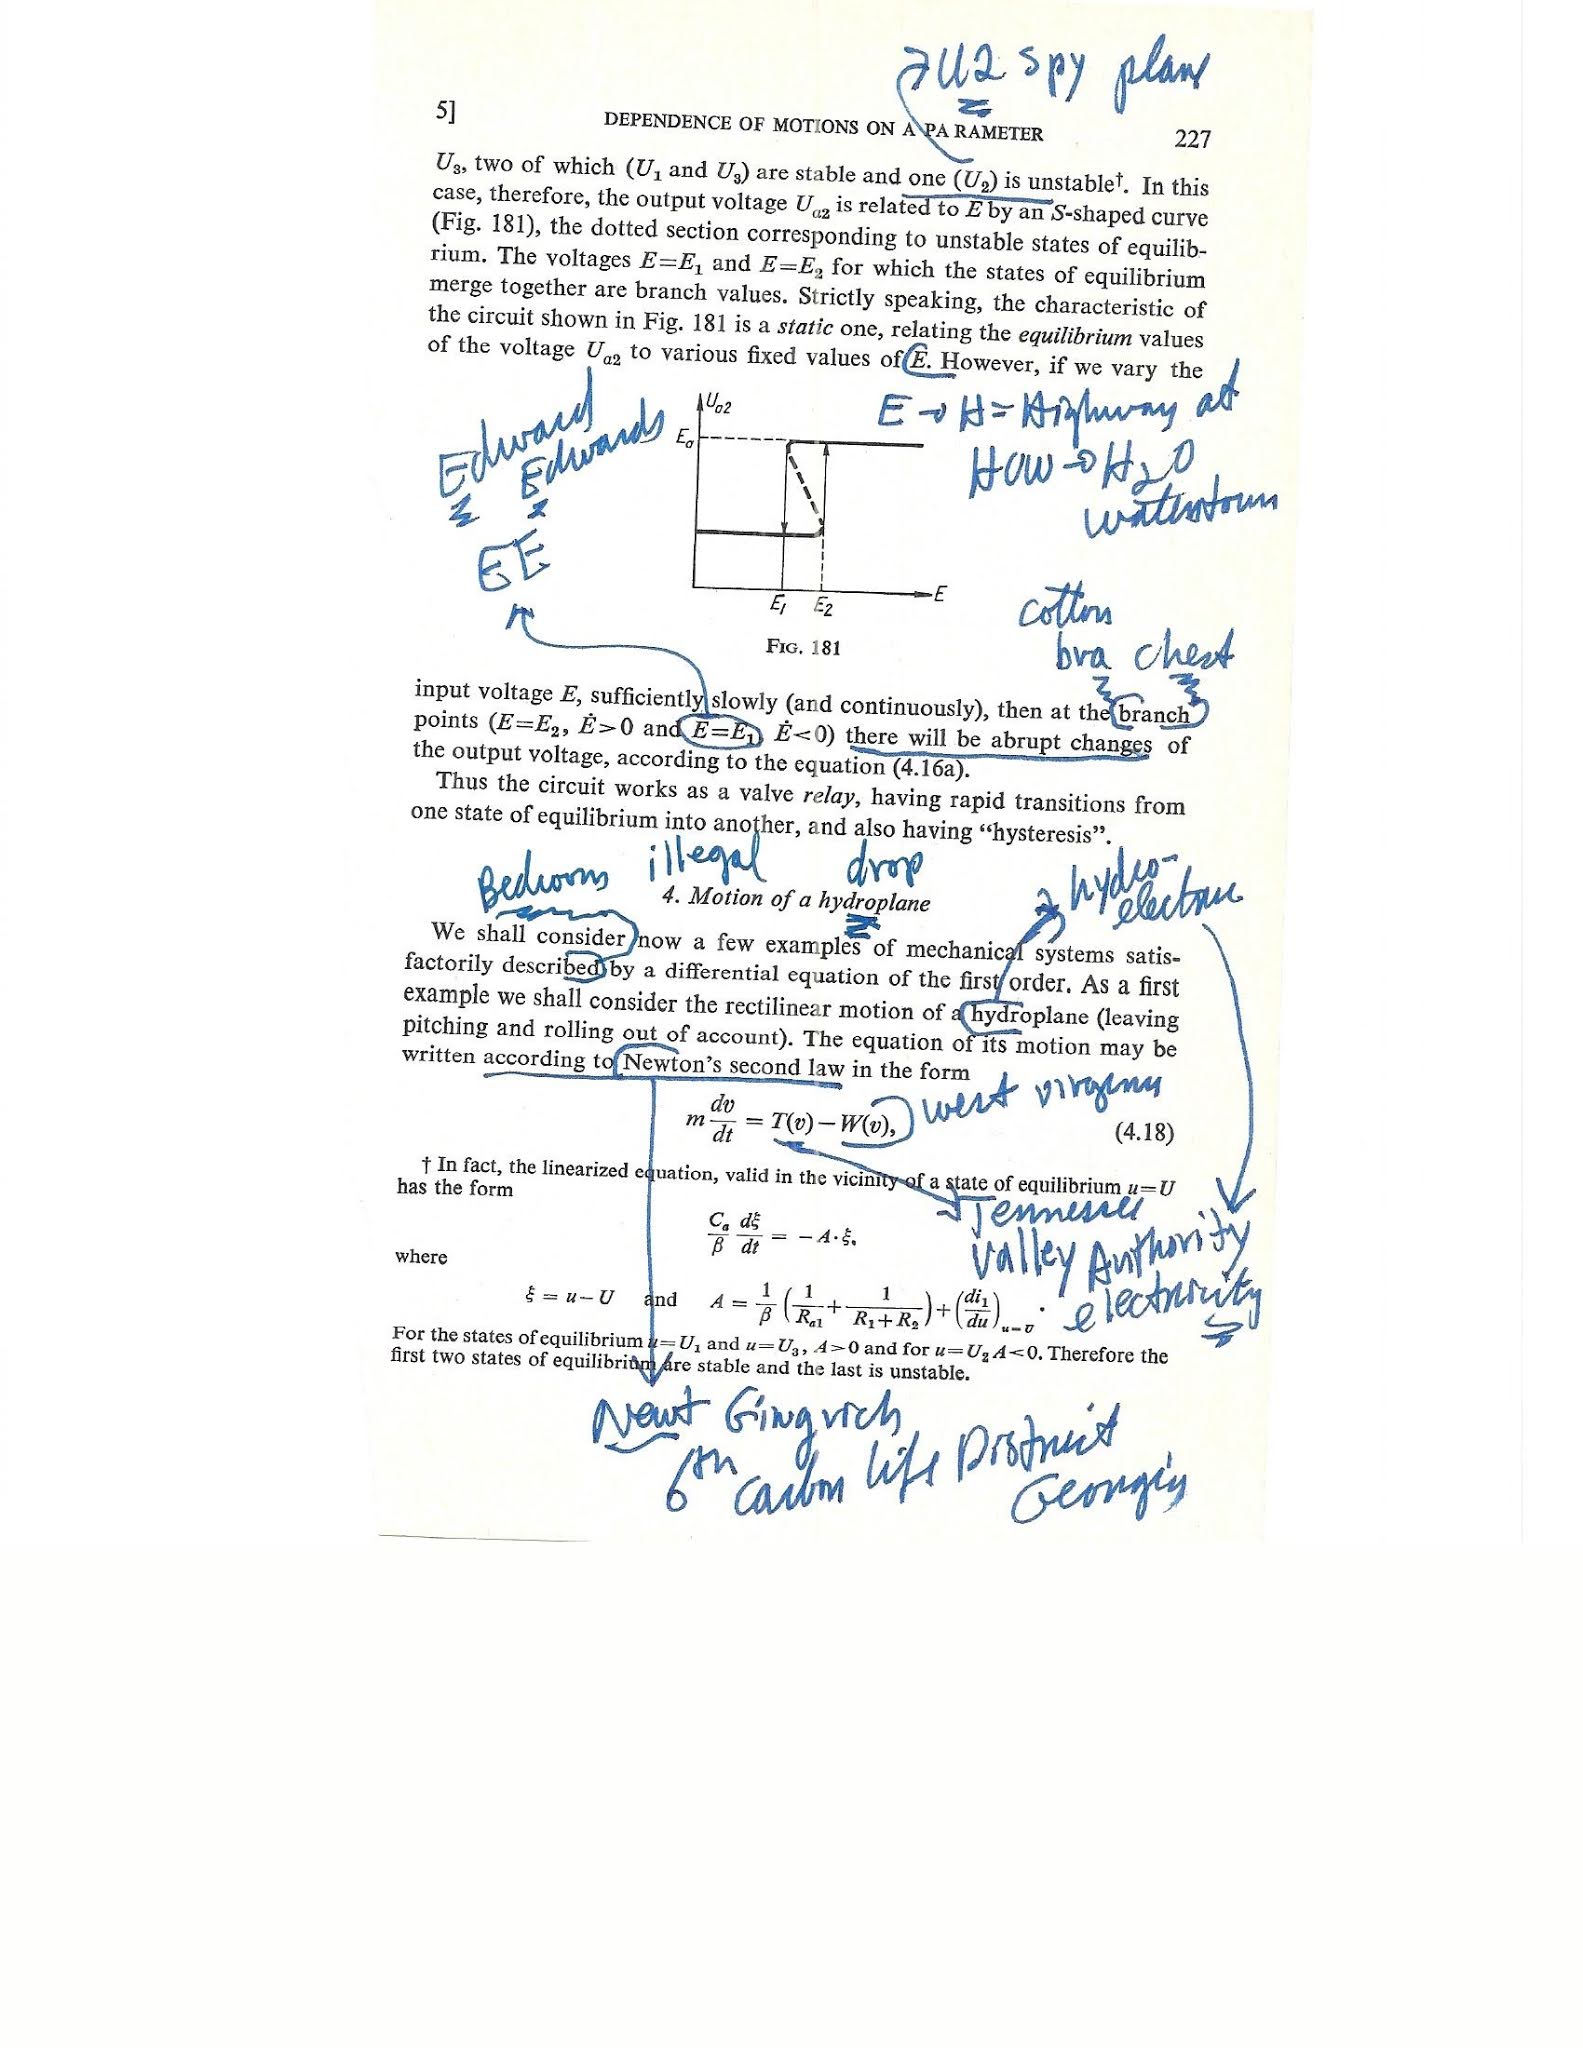 U2 spy plane
5] DEPENDENCE OF MOTIONS ON A PARAMETER 227
U₃, two of which (U₁ and U₃) are stable and one (U₂) is unstable†. In this
case, therefore, the output voltage Uₐ₂ is related to E by an S-shaped curve
(Fig. 181), the dotted section corresponding to unstable states of equilib-
rium. The voltages E=E₁ and E=E₂ for which the states of equilibrium
merge together are branch values. Strictly speaking, the characteristic of
the circuit shown in Fig. 181 is a static one, relating the equilibrium values
of the voltage Uₐ₂ to various fixed values of E. However, if we vary the
Edward
Edwards
EE
Uₐ₂
Eₐ
E₁ E₂
E
E → H = Highway at
HOW → H₂O
watertown
FIG. 181
cotton
bra chest
input voltage E, sufficiently slowly (and continuously), then at the branch
points (E=E₂, Ė>0 and E=E₁, Ė<0) there will be abrupt changes of
the output voltage, according to the equation (4.16a).
Thus the circuit works as a valve relay, having rapid transitions from
one state of equilibrium into another, and also having “hysteresis”.
Bedroom illegal drop
hydro-
electric
4. Motion of a hydroplane
We shall consider now a few examples of mechanical systems satis-
factorily described by a differential equation of the first order. As a first
example we shall consider the rectilinear motion of a hydroplane (leaving
pitching and rolling out of account). The equation of its motion may be
written according to Newton’s second law in the form
west virginia
m dv/dt = T(v) − W(v), (4.18)
† In fact, the linearized equation, valid in the vicinity of a state of equilibrium u=U
has the form
Tennessee
Valley Authority
electricity
Cₐ/β dξ/dt = − A·ξ,
where
ξ = u − U and A = 1/β (1/Rₐ₁ + 1/(R₁+R₂)) + (di₁/du)ᵤ₌U.
For the states of equilibrium u=U₁ and u=U₃, A>0 and for u=U₂ A<0. Therefore the
first two states of equilibrium are stable and the last is unstable.
Newt Gingrich
6th carbon life District
Georgia